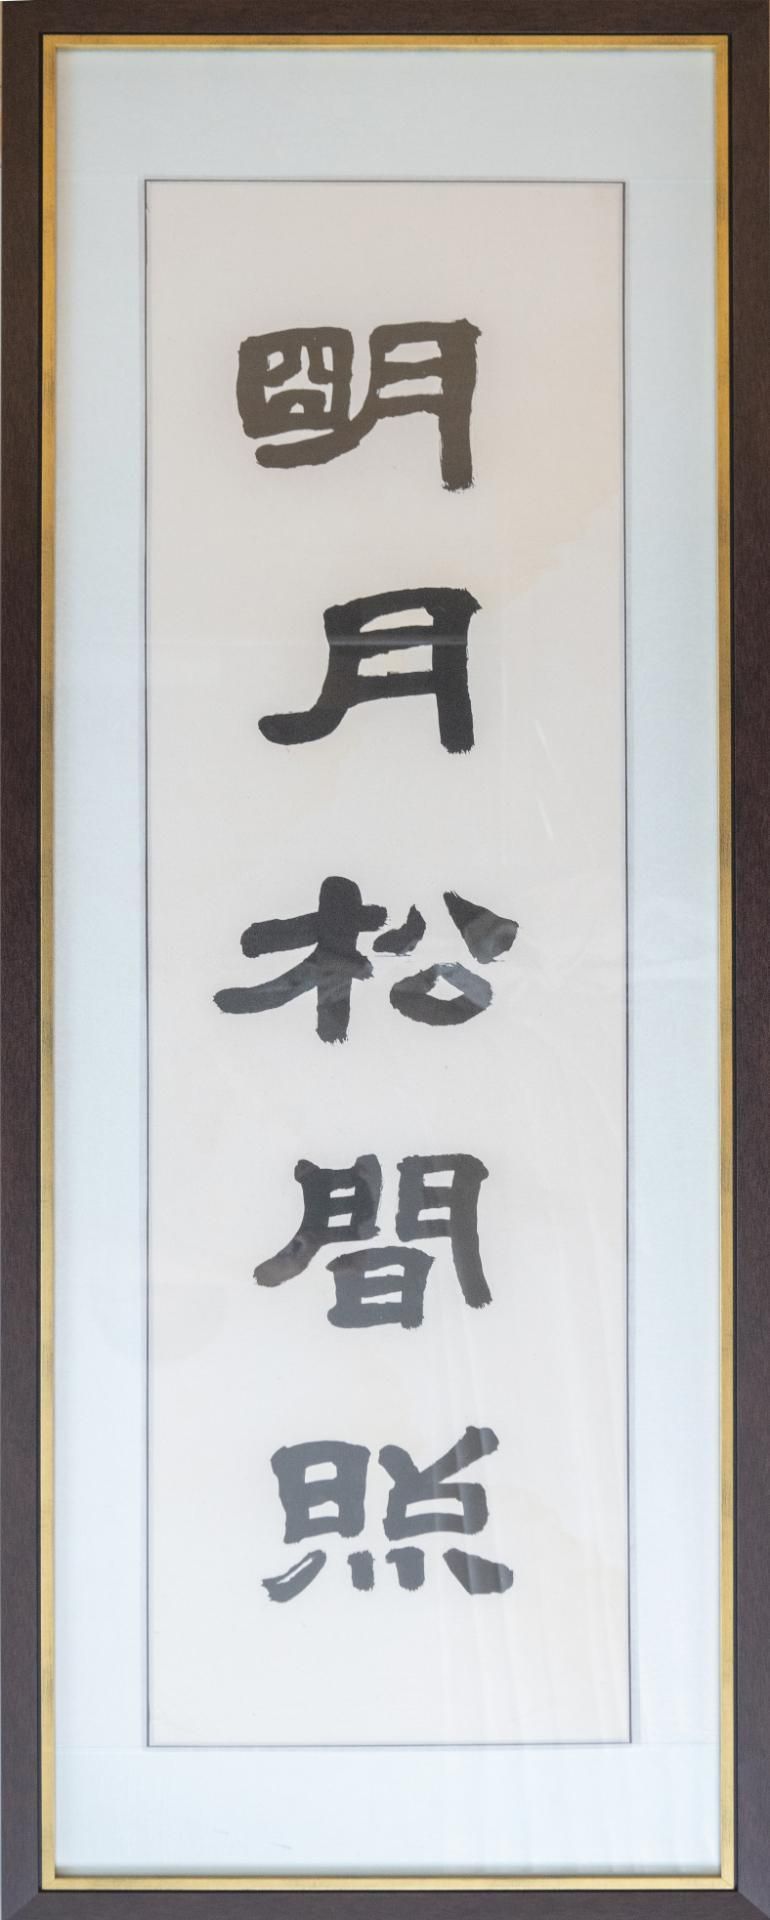 朙月松間照